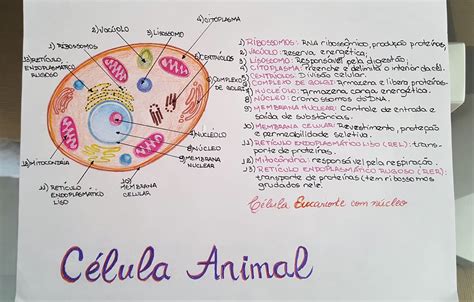 4) CITOPLASMA
2) VACÚOLO
3) LISOSSOMO
1) RIBOSSOMOS
5) CENTRÍOLOS
13) RETÍCULO
ENDOPLASMÁTICO
RUGOSO
6) COMPLEXO
DE GOLGI
7) NUCLÉOLO
8) NÚCLEO
9) MEMBRANA
NUCLEAR
12) MITOCÔNDRIA
11) RETÍCULO
ENDOPLASMÁTICO
LISO
10)
MEMBRANA
CELULAR
1) RIBOSSOMOS: RNA ribossômico, produção proteínas,
2) VACÚOLO: Reserva energética;
3) LISOSSOMO: Responsável pela digestão;
4) CITOPLASMA: Preenche e delimita o interior da cél.
5) CENTRÍOLOS: Divisão celular.
6) COMPLEXO DE GOLGI: Armazena e libera proteínas
7) NUCLÉOLO: Armazena carga energética.
8) NÚCLEO: Cromossomos dsDNA.
9) MEMBRANA NUCLEAR: Controle de entrada e
saída de substâncias.
10) MEMBRANA CELULAR: Revestimento, proteção
e permeabilidade seletiva.
11) RETÍCULO ENDOPLASMÁTICO LISO (REL): trans-
porte de proteínas.
12) Mitocôndria: responsável pela respiração.
13) RETÍCULO ENDOPLASMÁTICO RUGOSO (RER):
transporte de proteínas (tem ribossomos
grudados nele.
Célula Eucarionte com núcleo
Célula Animal